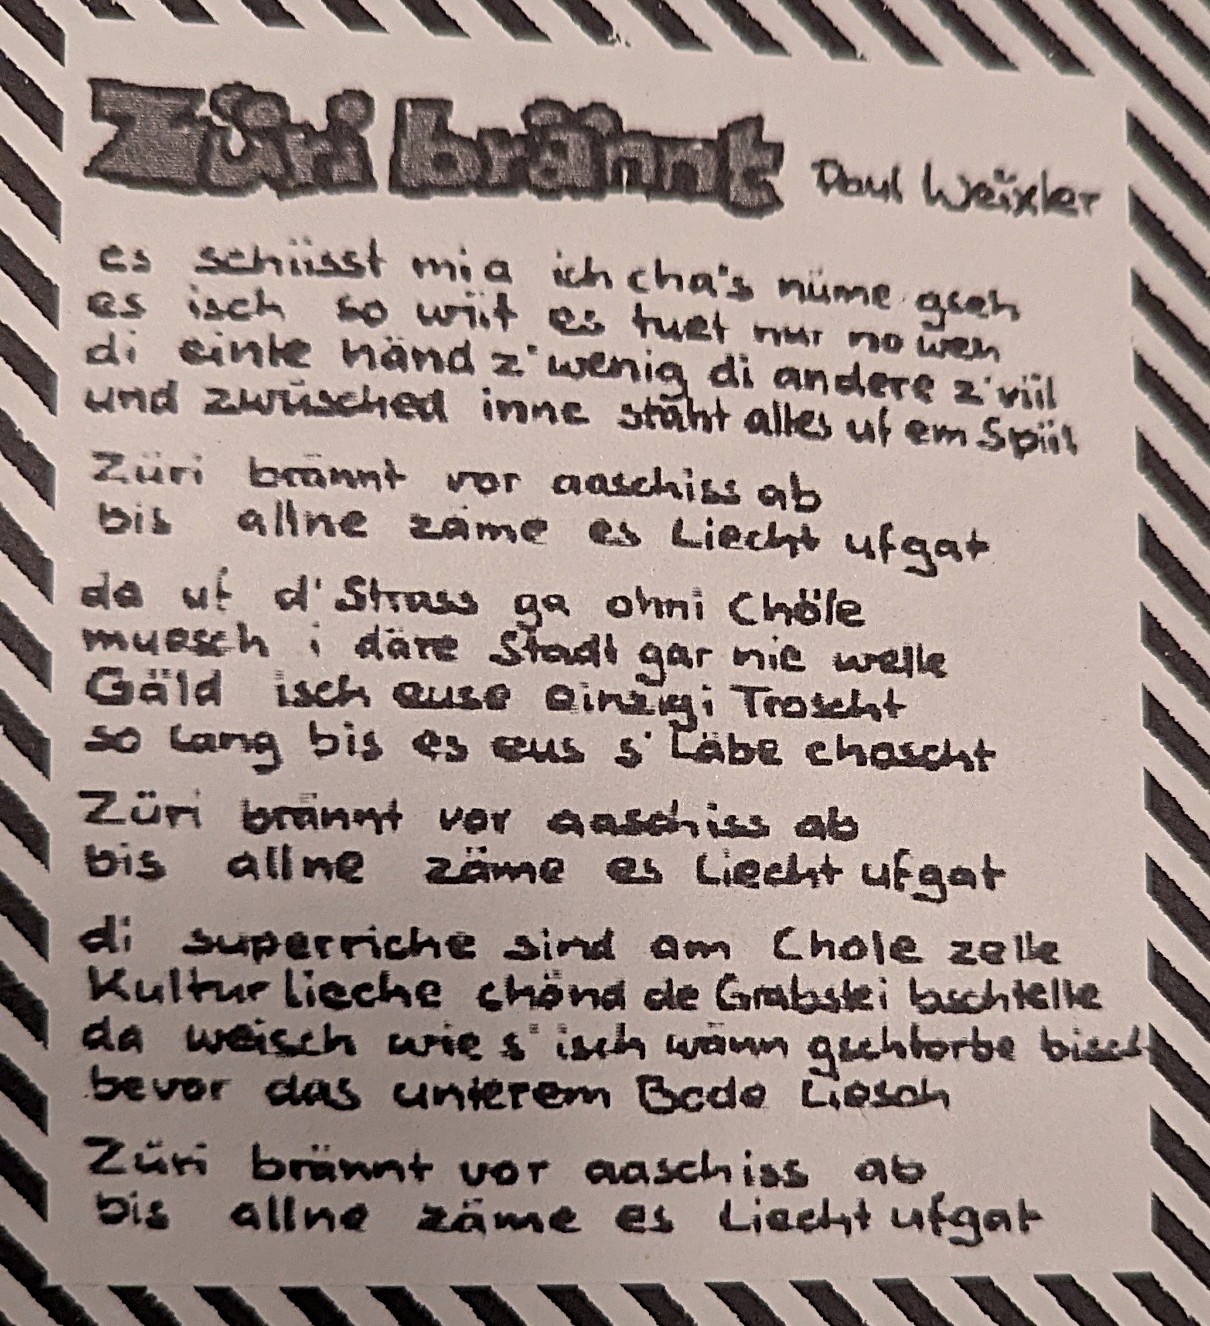 Züri brännt Paul Weixler
es schiisst mi a ich cha's nüme gseh
es isch so wiit es tuet nur no weh
di einte händ z'wenig di andere z'viil
und zwüsched inne staht alles uf em Spiil
Züri brännt vor aaschiss ab
bis allne zäme es Liecht ufgat
da uf d'Strass ga ohni Chöle
muesch i däre Stadt gar nie welle
Gäld isch euse einzigi Troscht
so lang bis es eus s'Läbe choscht
Züri brännt vor aaschiss ab
bis allne zäme es Liecht ufgat
di superriche sind am Chole zelle
Kulturlieche chönd de Grabstei bschtelle
da weisch wie s'isch wänn gschtorbe bisch
bevor das unterem Bode Liesch
Züri brännt vor aaschiss ab
bis allne zäme es Liecht ufgat